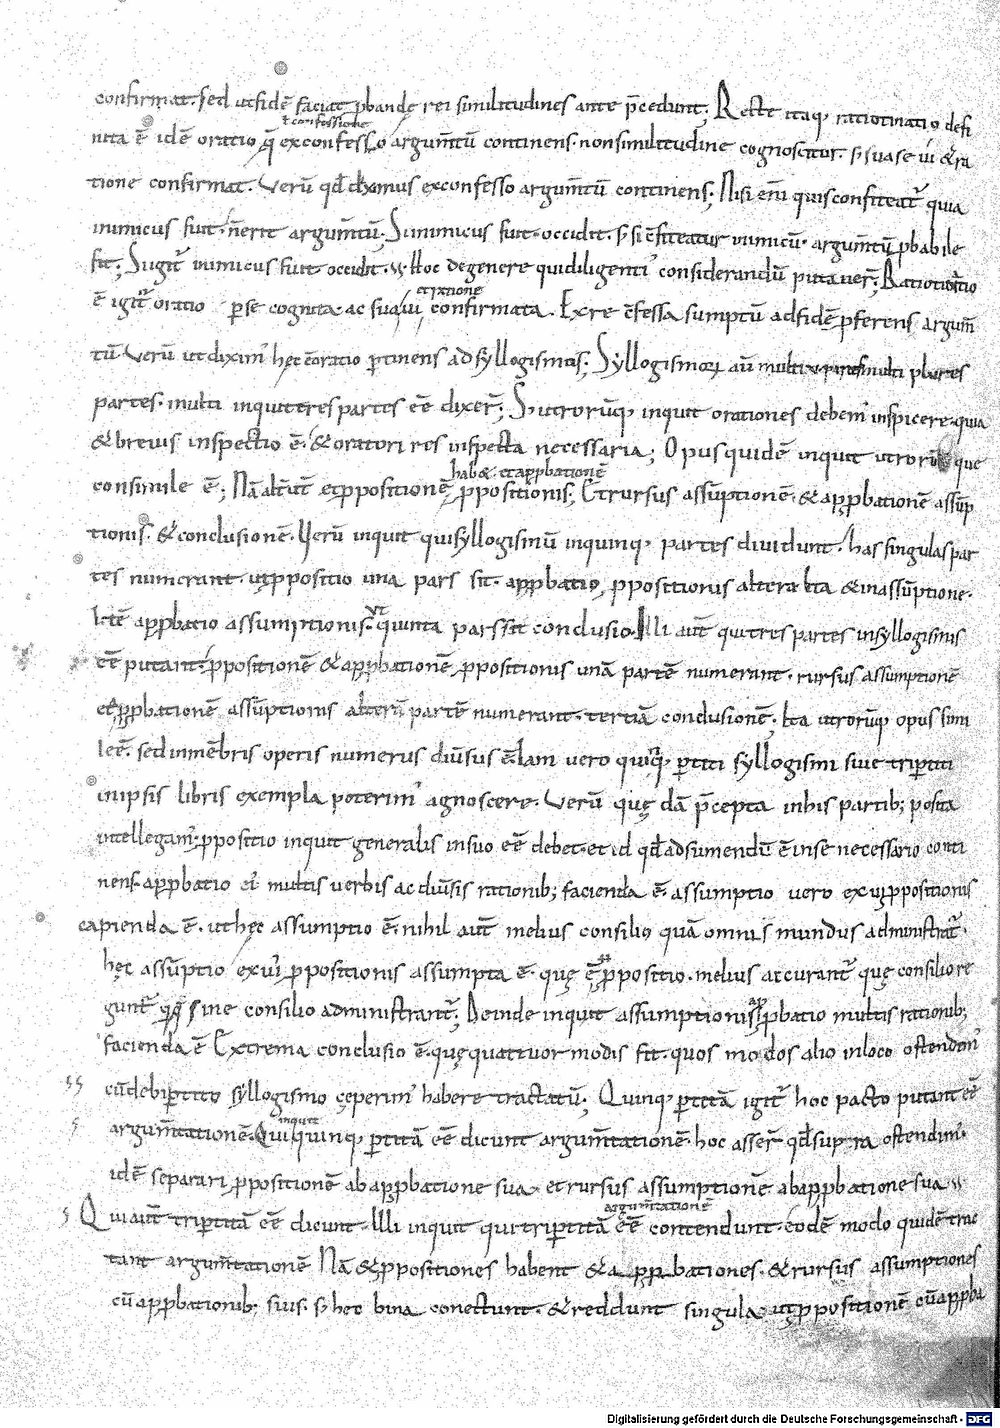 confirmat. Sed ut fidē faciat ꝓbandę rei similitudines ante p̄cedunt; Recte itaq; ratiotinatio defi
nita ē idē oratio q̄ exconfesso argum̄tū continens. non similitudine cognoscitur. sꝫ suase ui & ra
ł confessione
tione confirmat. Verū qđ diximus exconfesso argum̄tū continens; Nisi eni quis confiteat̄ quia
inimicus fuit. n̄ erit argum̄tū. Si inimicus fuit. occidit. sꝫ si c̄fiteatur inimicū. argum̄tū ꝓbabile
fit; Si igit̄ inimicus fuit occidit. Hoc degenere qui diligenti' considerandū putauer̄; Ratiotinatio
ē igit̄ oratio ꝑse cognita. ac sua ui confirmata. Ex re c̄fessa sumptū adfidē ꝓferens argum̄
et ratione
tū. Verū ut dixim' hęc ē oratio ꝑtinens ad syllogismos; Syllogismorū aū multi v partes multi plures
partes. multi inquit tres partes eē dixer̄; Sꝫ utrorūq; inquit orationes debem' inspicere. quia
& breuis inspectio ē. & oratori res inspecta necessaria; Opus quidē inquit utrorūque
consimile ē; Nā alt̄ut et ꝓpositionē ꝓpositionis; Et rursus assūptionē. & apꝓbationē assūp
hab& et apꝓbationē
tionis. & conclusionē. Verū inquit qui syllogismū inquinq; partes diuidunt. has singulas par
tes numerant. ut ꝓpositio una pars sit. apꝓbatio ꝓpositionis altera. Ita & in assūptione.
Itē apꝓbatio assumptionis. ut quinta pars sit conclusio. Illi aut̄ qui tres partes in syllogismis
eē putant. ꝓpositionē & apꝓbationē ꝓpositionis unā partē numerant. rursus assumptionē
et apꝓbationē assūptionis alterā partē numerant. tertiā conclusionē; Ita utrorūq; opus simi
le ē. sed in mēbris operis numerus diuersus ē. Iam vero quinq; ꝑtiti syllogismi siue tripertiti
in ipsis libris exempla poterim' agnoscere. Verū quędā p̄cepta in his partib; posita
intellegam'; ꝓpositio inquit generalis in suo eē debet. et id qđ adsumendū ē in se necessario conti
nens. apꝓbatio ei' multis uerbis ac diuersis rationib; facienda ē. assumptio vero ex ui ꝓpositionis
capienda ē. ut hęc assumptio ē. nihil aut̄ melius consilio quā omnis mundus administrat̄.
hęc assūptio ex ui ꝓpositionis assumpta ē. quę ē ꝓpositio. melius accurant̄ quę consilio re
gunt̄ quā quę sine consilio administrant̄; Deinde inquit assumptionis apꝓbatio multis rationib;
facienda ē Extrema conclusio ē. quę quattuor modis fit. quos modos alio in loco ostendem'
cū de bipertito syllogismo ceperim' habere tractatū; Quinq; ꝑtitā igit̄ hoc pacto putant eē
argum̄tationē. Qui quinq; ꝑtitā eē dicunt argum̄tationē. hoc asser̄ qđ supra ostendim'.
inquit
idē separari ꝓpositionē ab apꝓbatione sua. et rursus assumptionē ab apꝓbatione sua
Qui aut̄ tripertitā eē dicunt. Illi inquit qui tripertitā eē contendunt. eodē modo quidē trac
argum̄tationē
tant argum̄tationē Nā & ꝓpositiones habent & apꝓbationes. & rursus assumptiones
cū apꝓbationib; suis. sꝫ hęc bina conectunt. & reddunt singula. ut ꝓpositionē cū apꝓba
Digitalisierung gefördert durch die Deutsche Forschungsgemeinschaft - DFG